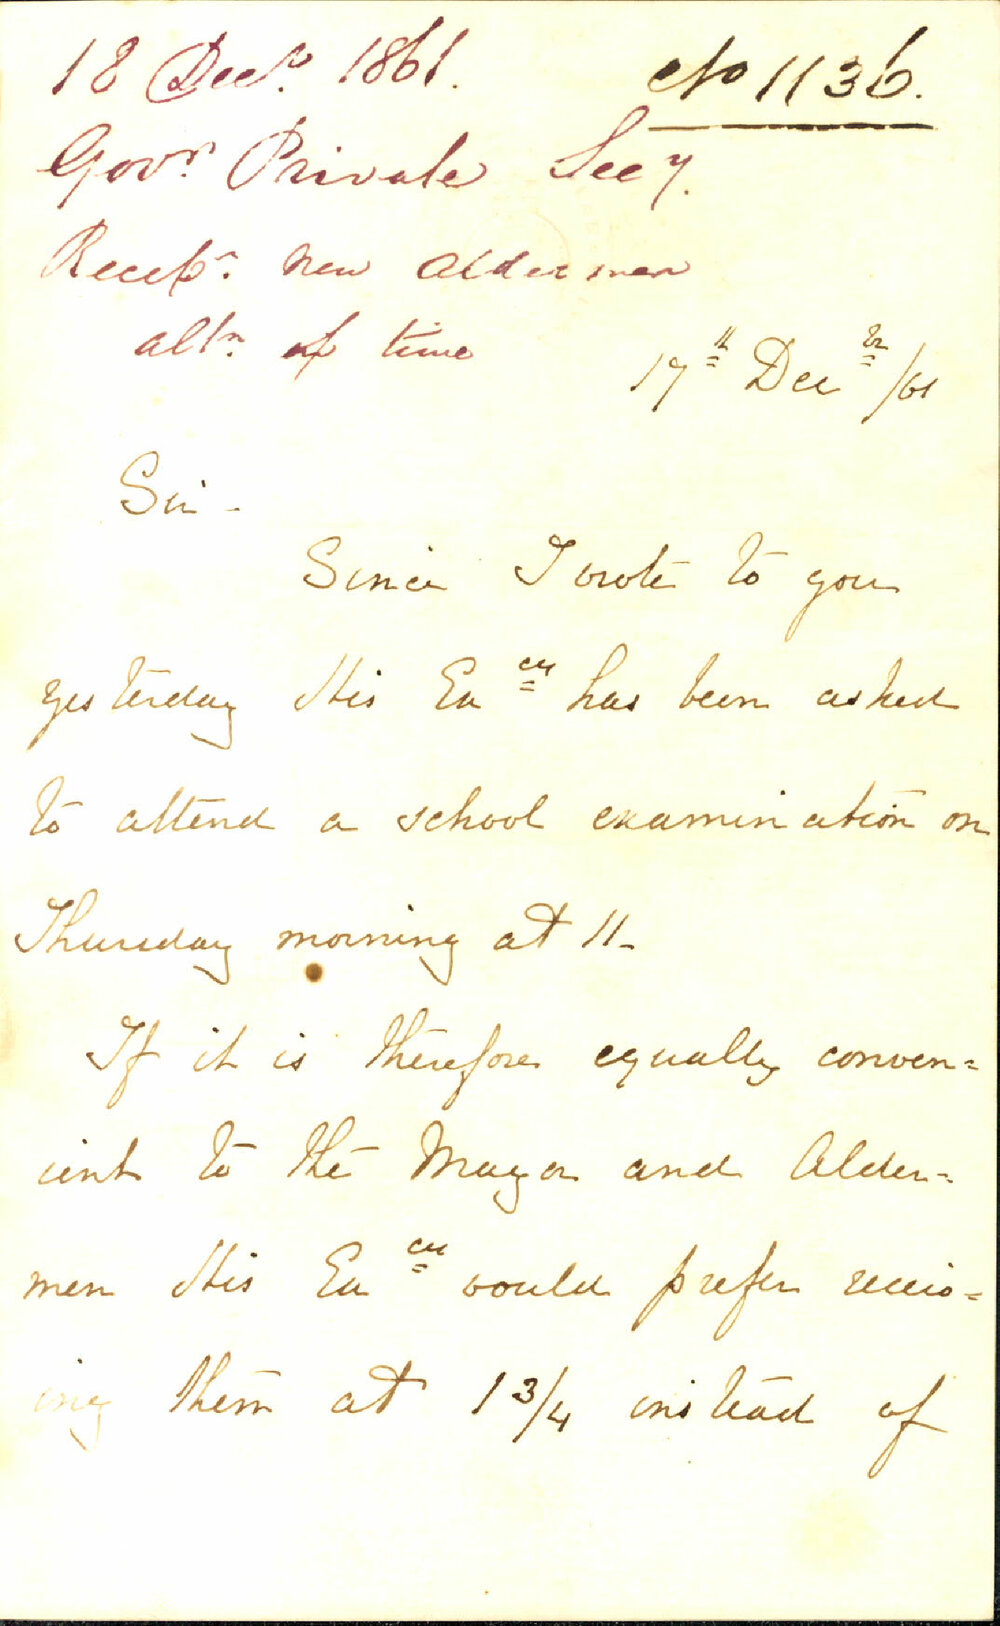 18 Decr. 1861. No 1136.
Govr. Private Secy.
Recepn. new aldermen
altn. of time
17th Decr/61
Sir -
Since I wrote to you
yesterday His Excy has been asked
to attend a school examination on
Thursday morning at 11-
If it is therefore equally conven=
ient to the Mayor and Alder=
men His Excy would prefer receiv=
ing them at 1 3/4 instead of